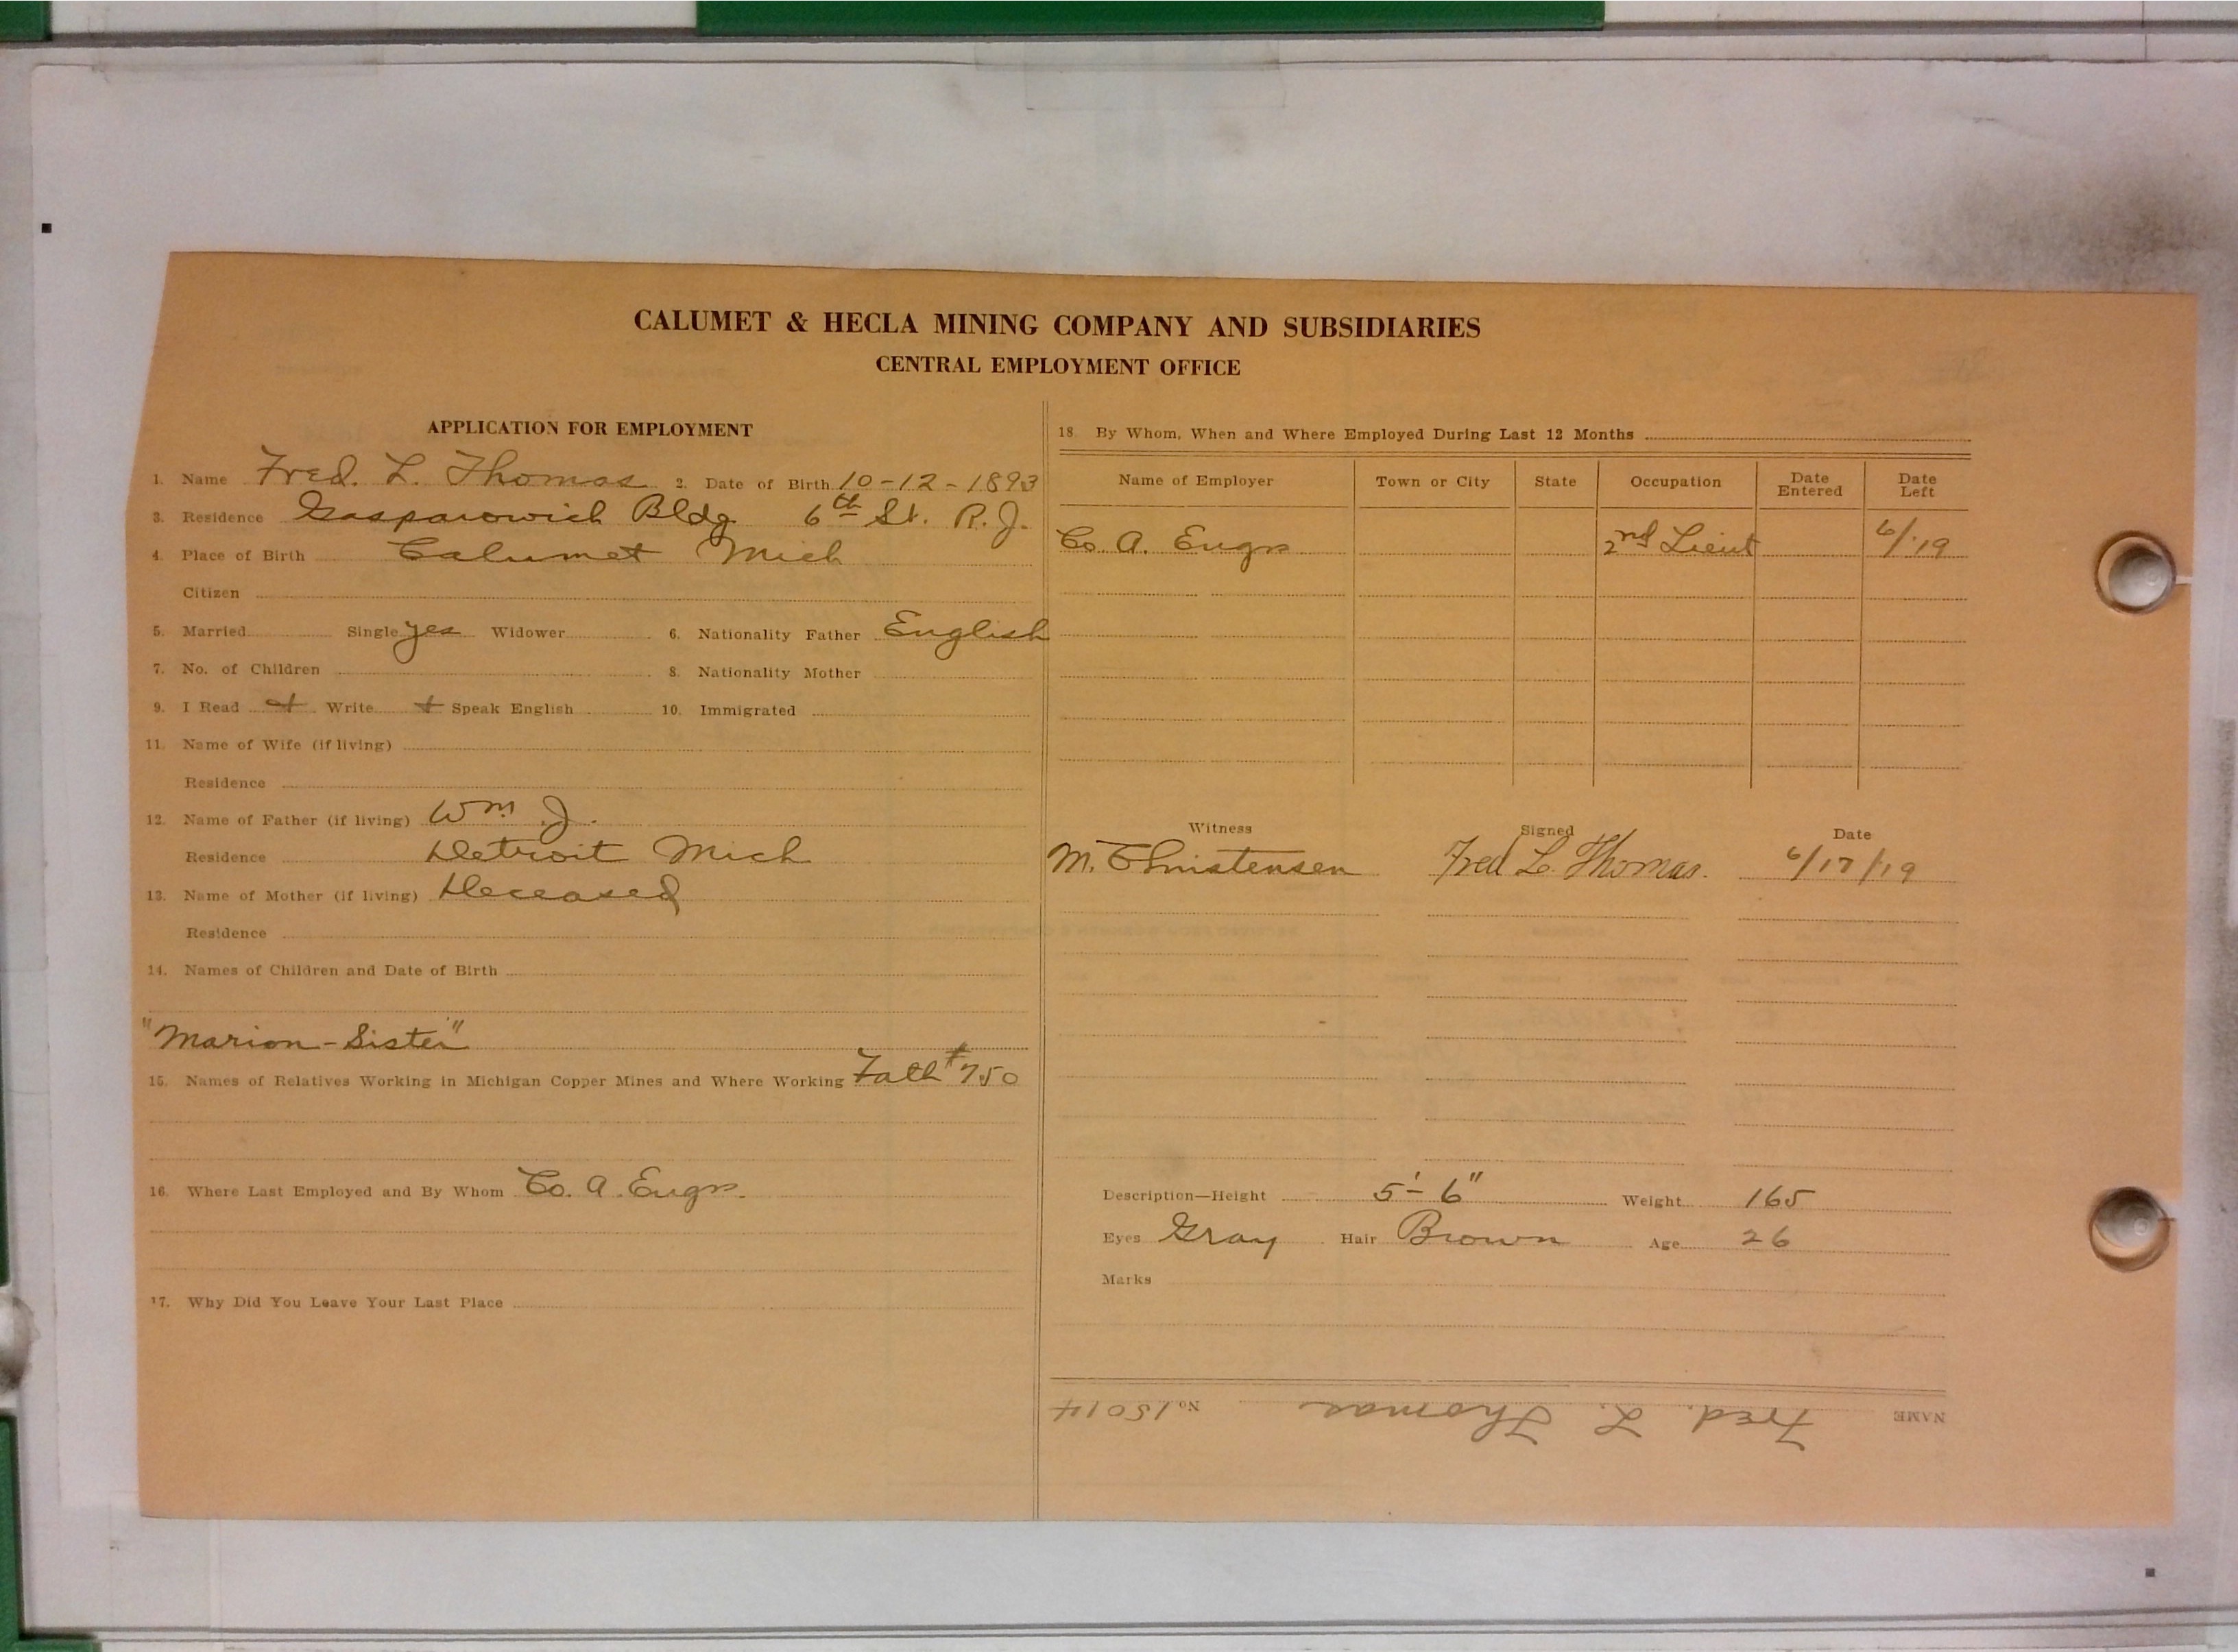 CALUMET & HECLA MINING COMPANY AND SUBSIDIARIES
CENTRAL EMPLOYMENT OFFICE
APPLICATION FOR EMPLOYMENT
1. Name Fred. L. Thomas 2. Date of Birth 10-12-1893
3. Residence Gasparowich Bldg 6th St. R.J.
4. Place of Birth Calumet Mich
Citizen
5. Married Single yes Widower 6. Nationality Father English
7. No. of Children 8. Nationality Mother
9. I Read + Write + Speak English 10. Immigrated
11. Name of Wife (if living)
Residence
12. Name of Father (if living) Wm. J.
Residence Detroit Mich
13. Name of Mother (if living) Deceased
Residence
14. Names of Children and Date of Birth
"Marion-Sister"
15. Names of Relatives Working in Michigan Copper Mines and Where Working Fath #750
16. Where Last Employed and By Whom Co. A. Engrs.
17. Why Did You Leave Your Last Place
18 By Whom, When and Where Employed During Last 12 Months
Name of Employer Town or City State Occupation Date Entered Date Left
Co. A. Engrs 2nd Lieut 6/'19
Witness Signed Date
M. Christensen Fred L. Thomas. 6/17/19
Description—Height 5'-6" Weight 165
Eyes Gray Hair Brown Age 26
Marks
NAME Fred. L. Thomas No. 15014